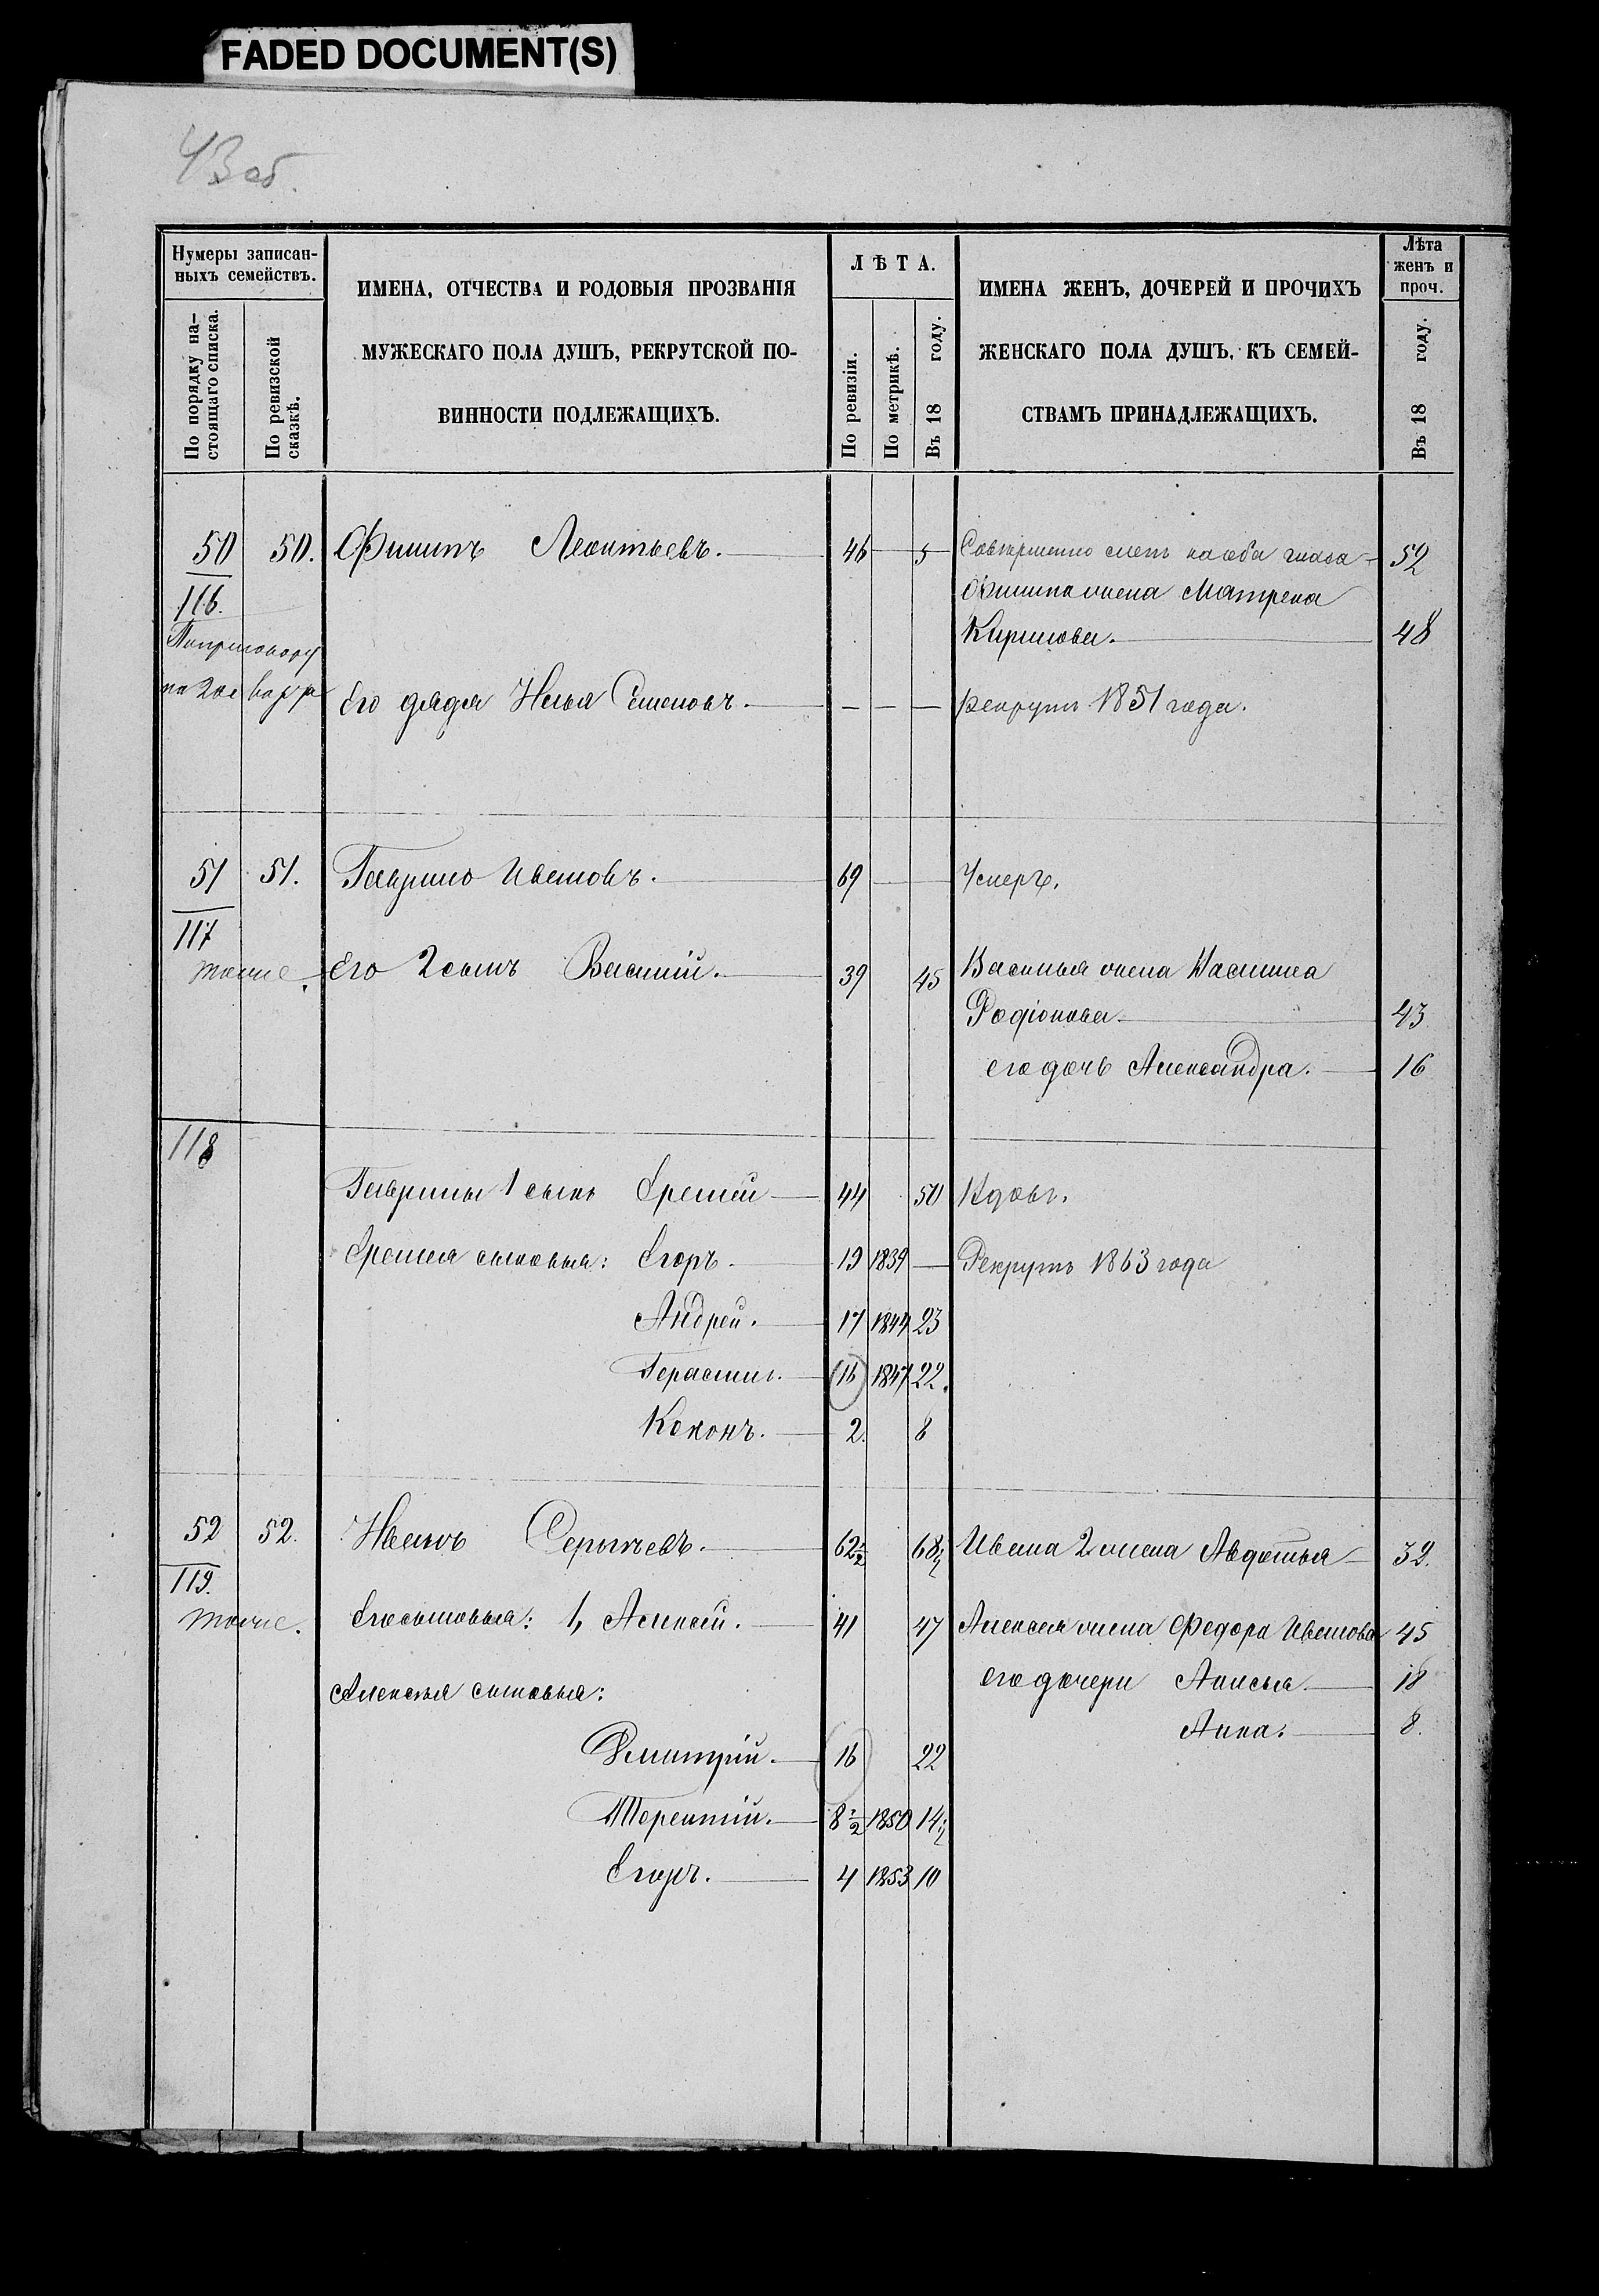 FADED DOCUMENT(S)
43 об.
Нумеры записан-
ныхъ семействъ.
По порядку на-
стоящаго списка.
По ревизской
сказкѣ.
ИМЕНА, ОТЧЕСТВА И РОДОВЫЯ ПРОЗВАНІЯ
МУЖЕСКАГО ПОЛА ДУШЪ, РЕКРУТСКОЙ ПО-
ВИННОСТИ ПОДЛЕЖАЩИХЪ.
ЛѢТА.
По ревизіи.
По метрикѣ.
Въ 18 году.
ИМЕНА ЖЕНЪ, ДОЧЕРЕЙ И ПРОЧИХЪ
ЖЕНСКАГО ПОЛА ДУШЪ, КЪ СЕМЕЙ-
СТВАМЪ ПРИНАДЛЕЖАЩИХЪ.
Лѣта
женъ и
проч.
Въ 18 году.
50 50. Филипъ Леонтьевъ. 46 5 Совершенно слепъ на оба глаза 52
116. Филипа жена Матрена
Кирилова. 48
Его дядя Илья Семеновъ. — — — рекрутъ 1851 года.
51 51. Гаврило Ивановъ. 69 Умеръ.
117
тоже. Его 2 сынъ Василій. 39 45 Василья жена Василиса
Родіонова. 43
его дочь Александра. 16
118
Гаврилы 1 сынъ Еремей 44 50 Вдовъ.
Еремея сыновья: Егоръ. 19 1839 — Рекрутъ 1863 года
Андрей. 17 1844 23
Герасимъ. 16 1847 22.
Кононъ. 2. 8
52 52. Иванъ Сергѣевъ. 62½ 68½ Ивана 2 жена Авдотья 32.
119.
тоже. Его сыновья: 1, Алексей. 41 47 Алексея жена Федора Иванова 45
его дочери Анисья. 18
Алексея сыновья:
Анна. 8.
Дмитрій. 16 22
Терентій. 8½ 1850 14½
Егоръ. 4 1853 10